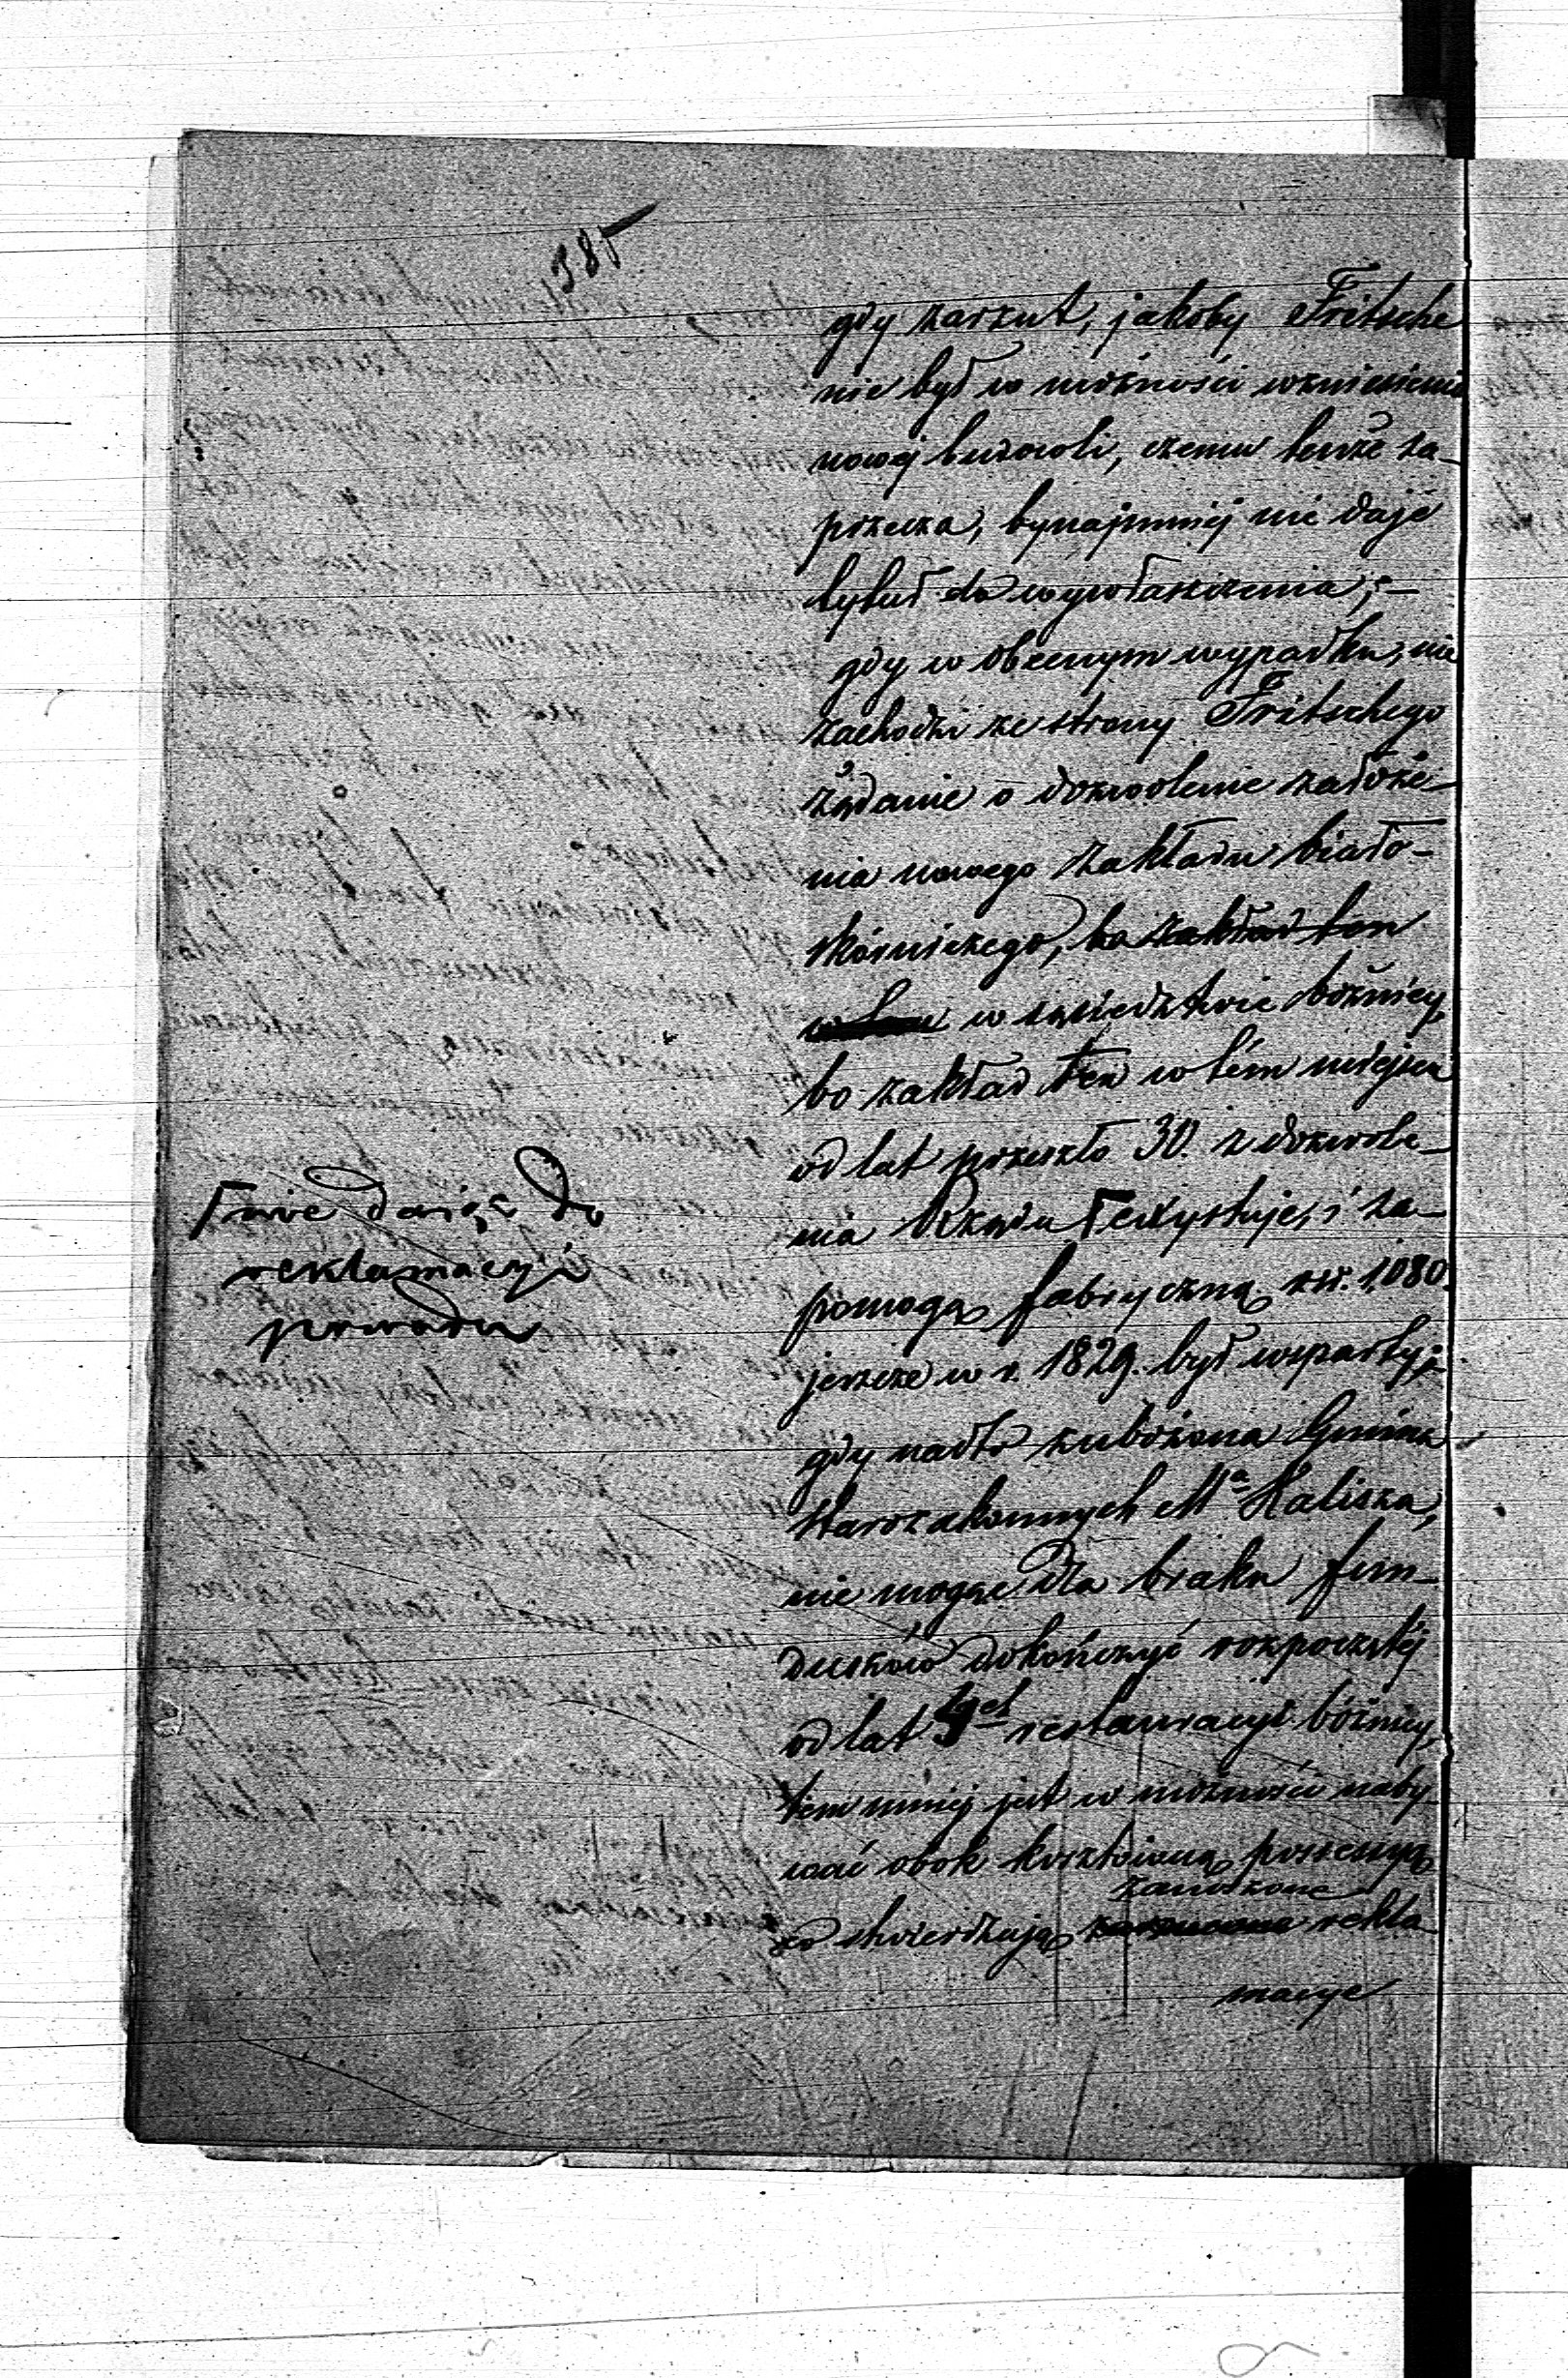 385
gdy zarzut, jakoby Fritsche
nie był w możności wzniesienia
nowej budowli, czemu tenże za-
przecza, bynajmniej nie daje
tytuł do wywłaszczenia; –
gdy w obecnym wypadku, nie
zachodzi ze strony Fritschego
żądanie o dozwolenie założe-
nia nowego zakładu biało-
skórniczego, bo zakład ten
w sąsiedztwie bóżnicy,
bo zakład ten w tém miejscu
od lat przeszło 30. z dozwole-
nia Rządu Γ exystuje, i za-
pomogą fabryczną rsr. 1,080.
jeszcze w r. 1829. był wsparty;
gdy nadto zubożona Gmina
Starozakonnych Mª Kalisza,
nie mogąc dla braku fun-
duszów dokończyć rozpoczętéj
od lat restauracyi bóżnicy,
tem mniej jest w możności naby-
wać obok kosztowną possessyą
zanoszone
co stwierdzają rekla
macye
Γ nie dając do
reklamacyi
powodu